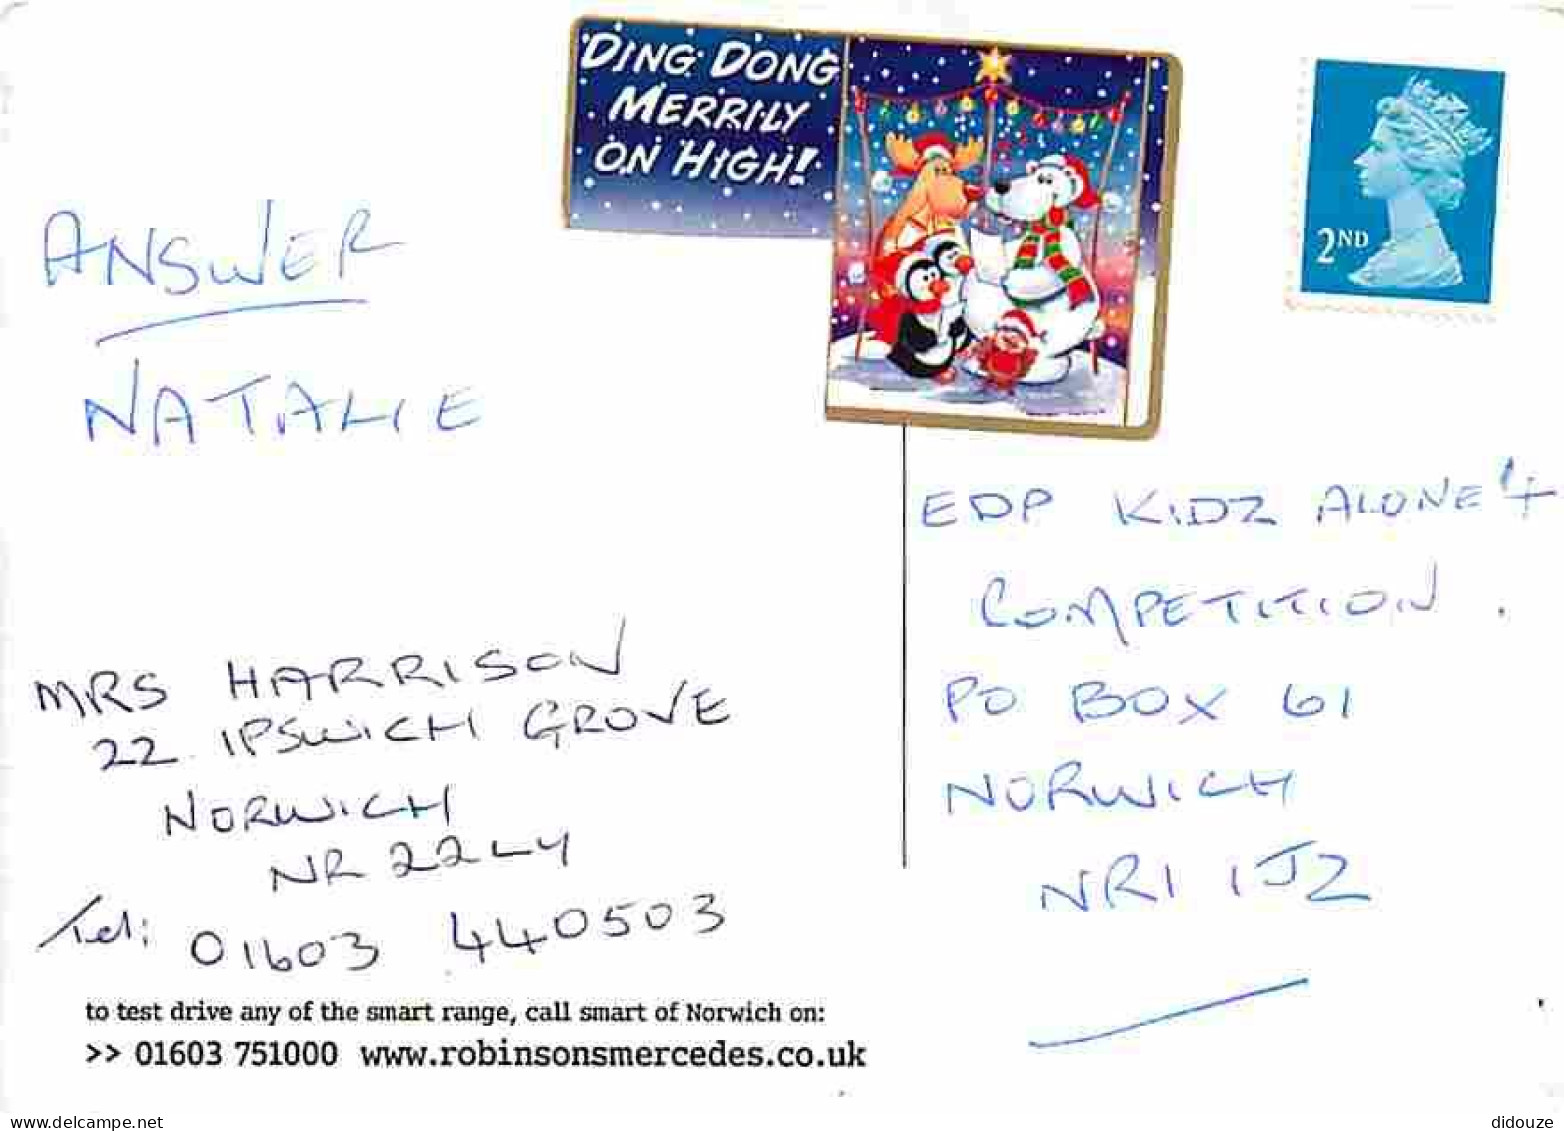 DING DONG
MERRILY
ON HIGH!
2ND
ANSWER
NATALIE
EDP KIDZ ALONE 4
COMPETITION.
PO BOX 61
NORWICH
NR1 1JZ
MRS HARRISON
22 IPSWICH GROVE
NORWICH
NR2 2LY
Tel: 01603 440503
to test drive any of the smart range, call smart of Norwich on:
>> 01603 751000 www.robinsonsmercedes.co.uk
www.delcampe.net
didouze